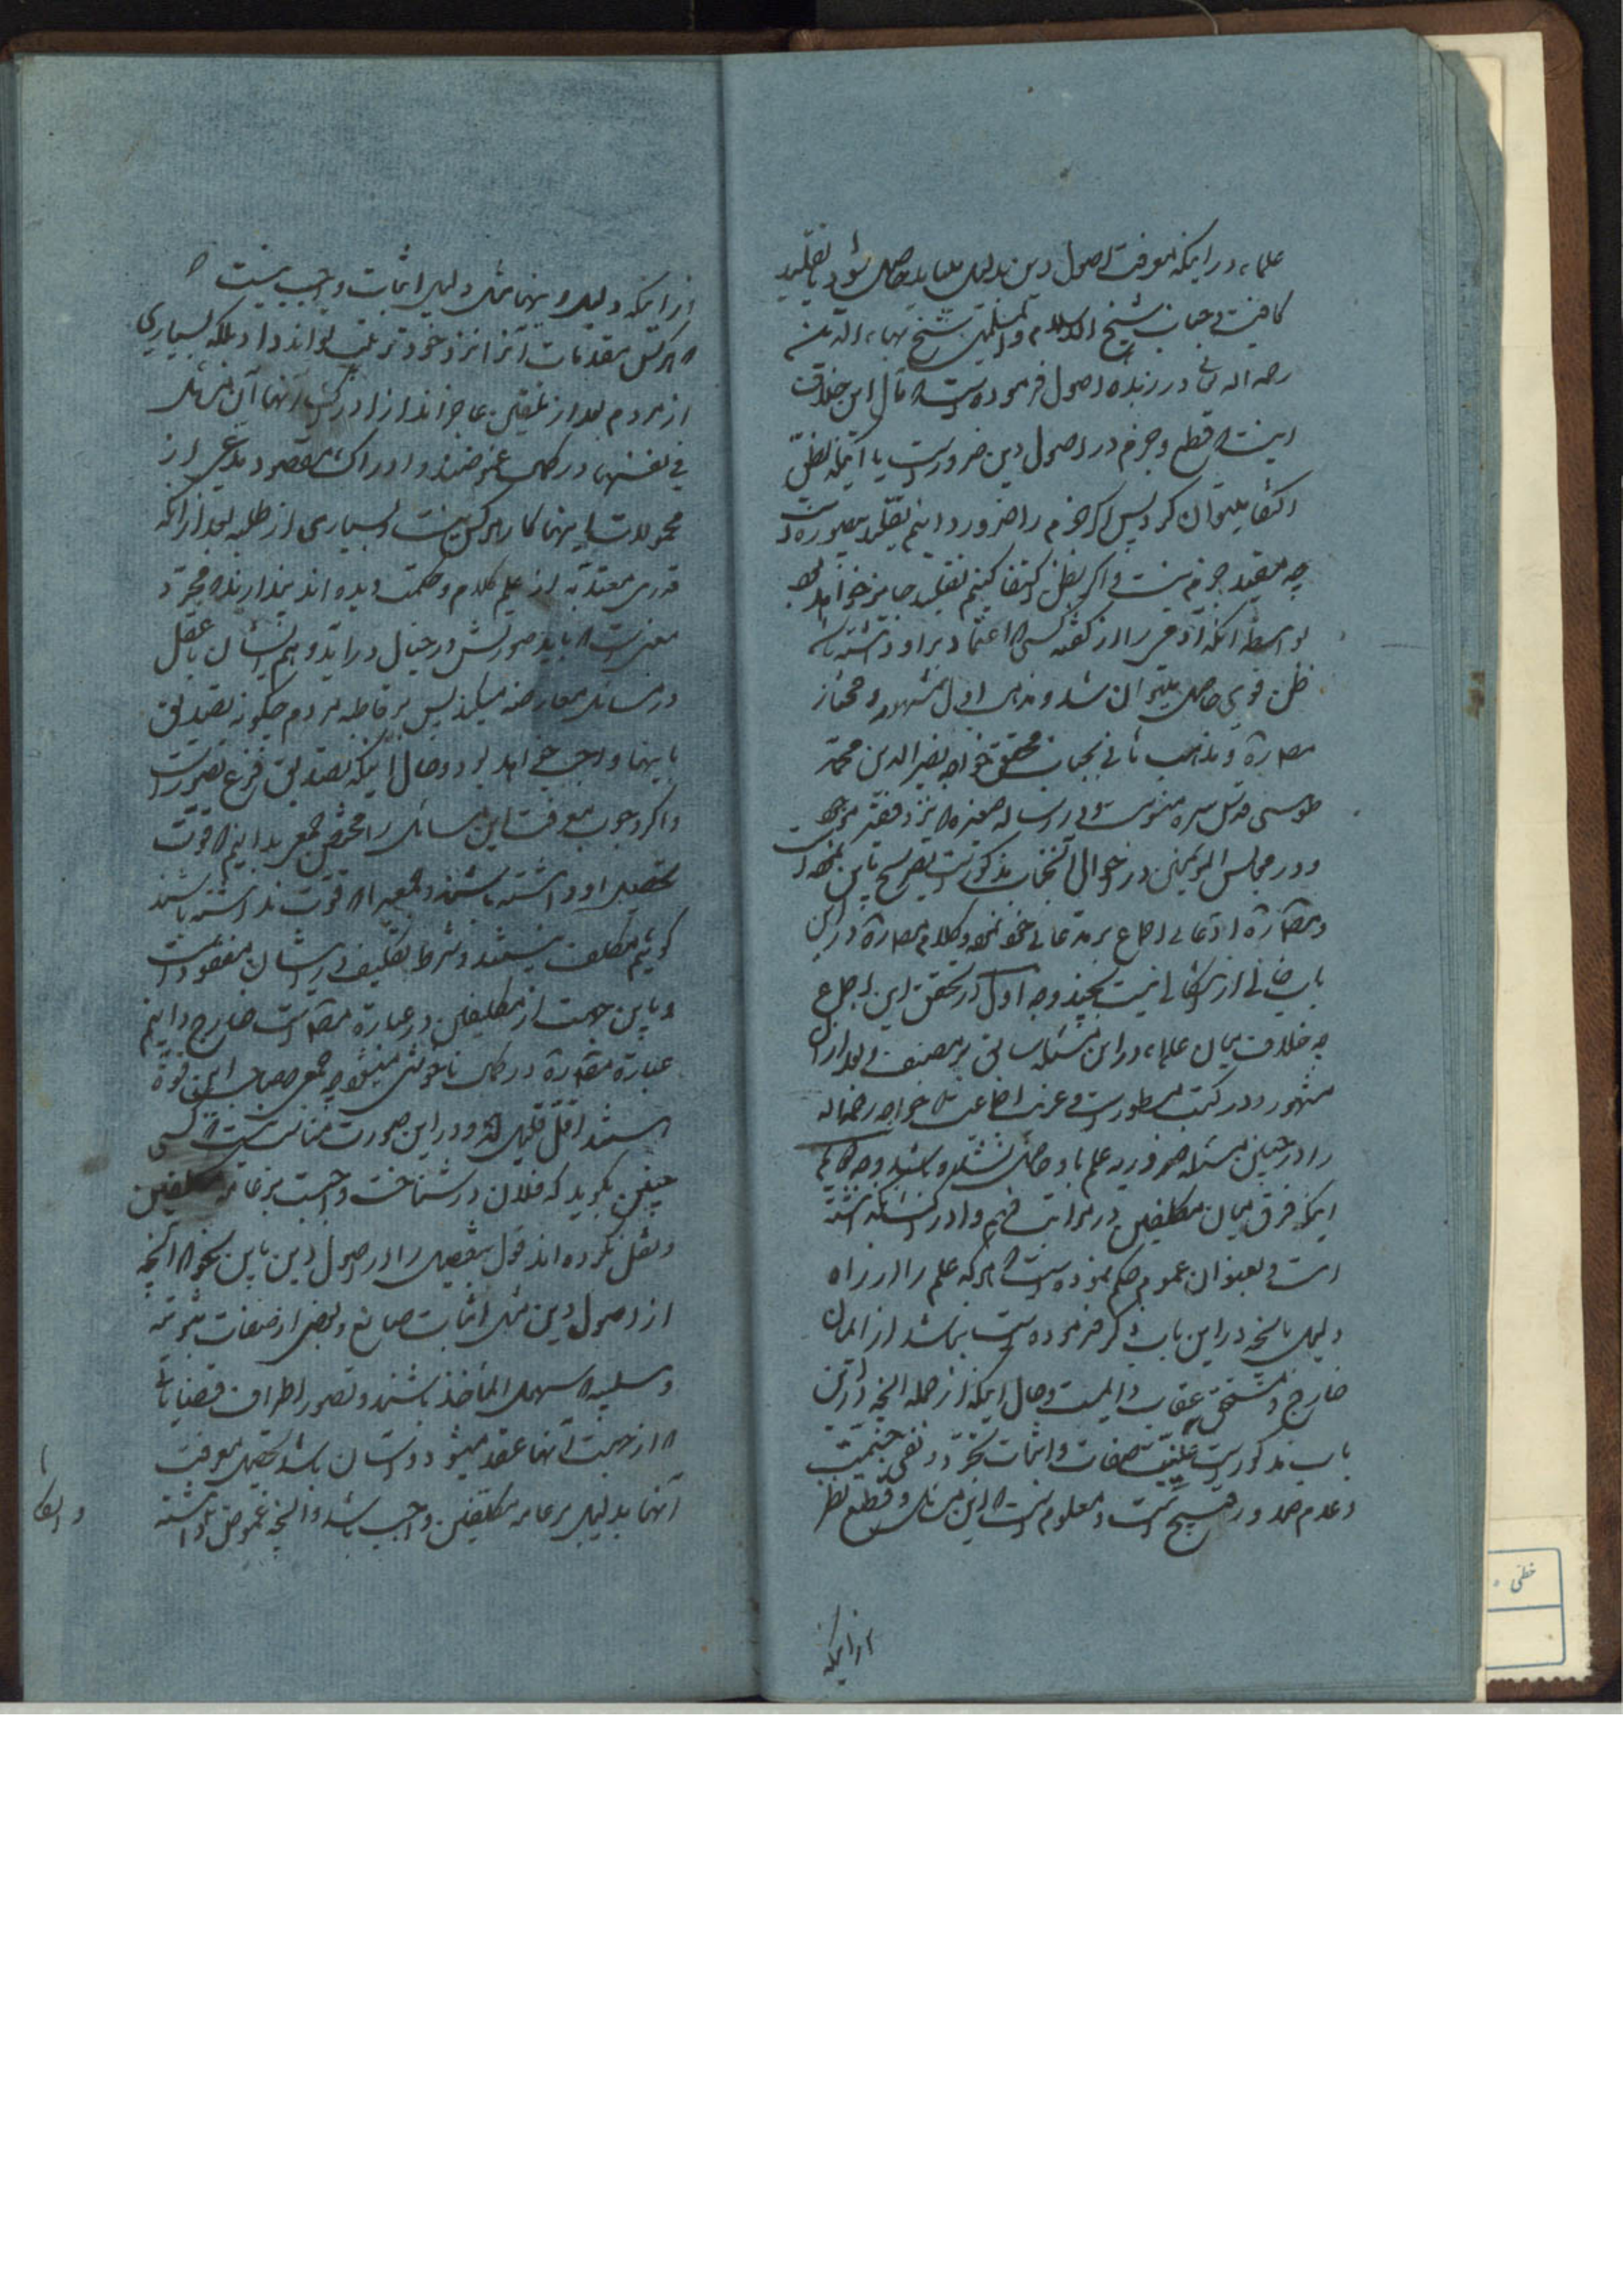 علماء در اینکه معرفت اصول دین بدلیل میباید حاصل شود یا تقلید
کافیست و جناب شیخ الاسلام و المسلمین شیخ بهاء الدین
رحمه الله تعالی در زبده اصول فرموده است که مآل این خلاف
اینست که قطع و جزم در اصول دین ضرورست یا آنکه بظن
اکتفا میتوان کرد پس اگر جزم را ضرور دانیم تقلید متصور نیست
چه مفید جزم نیست و اگر بظن اکتفا کنیم تقلید جایز خواهد بود
بواسطه آنکه آدمی را از گفته کسی که اعتماد بر او داشته باشد
ظن قوی حاصل میتوان شد و مذهب اول مشهور و مختار
مصادره و مذهب ثانی بجناب محقق خواجه نصیر الدین محمد
طوسی قدس سره منسوبست و در رساله که نزد فقیر موجود
و در مجالس المؤمنین در احوال آنجناب مذکورست تصریح باین نموده است
و مصادره ادعای اجماع بر مدعای خود نموده و کلام مصادره در این
باب خالی از اشکالی نیست بچند وجه اول آنکه تحقق این اجماع
چه خلاف میان علماء در این مسئله سابق بر مصنف و بعد از آن
مشهور و در کتب مسطورست و غریب
را در چنین مسئله ضروریه علم باو حاصل نشده باشد وجه دویم
اینکه فرق میان مکلفین در مراتب فهم و ادراک نگذاشته
است و بعنوان عموم حکم نموده است که هرکه علم را از راه
دلیل بآنچه در این باب ذکر فرموده است نداشته باشد از ایمان
خارج و مستحق عقاب دایمیست و حال اینکه از جمله آنچه در این
باب مذکورست عینیت صفات و اثبات تجرد و نفی جسمیت
و عدم صدور قبیح است و معلوم است که این مسائل و قطع نظر
از اینکه
از اینکه دلیل اینها مثل دلیل اثبات واجب نیست که
هر کس مقدمات آنرا نزد خود ترتیب تواند داد بلکه بسیاری
از مردم بعد از تلقین عاجزاند از ادراک آنها آن مسائل
فی نفسها در کمال غموضند و ادراک مقصود مدعی از
محمولات اینها کار هر کس نیست و بسیاری از طلبه بعد از آنکه
قدری معتدبه از علم کلام و حکمت دیده‌اند پندارند که مجرد
معنیست که باید صورتش در خیال در آید و وهم ایشان با عقل
در مسائل معارضه میکند پس بر قاطبه مردم چگونه تصدیق
باینها واجب خواهد بود و حال اینکه تصدیق فرع تصورست
و اگر وجوب معرفت این مسائل را مخصوص جمعی بدانیم که قوت
تحصیل او داشته باشند و جمعی را که قوت نداشته باشند
گوییم مکلف نیستند و شرط تکلیف در ایشان مفقودست
و باین جهت از مکلفین در عبارة مصادره خارج دانیم
عبارة مصادره در کمال ناخوشی میشود چه جمعی صاحب این قوة
هستند اقل قلیل‌اند و در این صورت مناسب نیست که کسی
چنین بگوید که فلان در شناخت واجبست بر عامه مکلفین
و نقل نکرده‌اند قول بتفصیل را در اصول دین باین نحو که آنچه
از اصول دین مثل اثبات صانع و بعضی از صفات ثبوتیه
و سلبیه که سهل المأخذ باشند و تصور اطراف قضایائی
که از جهت آنها عقد میشود آسان باشد تحصیل معرفت
آنها بدلیل بر عامه مکلفین واجب باشد و آنچه غموض داشته